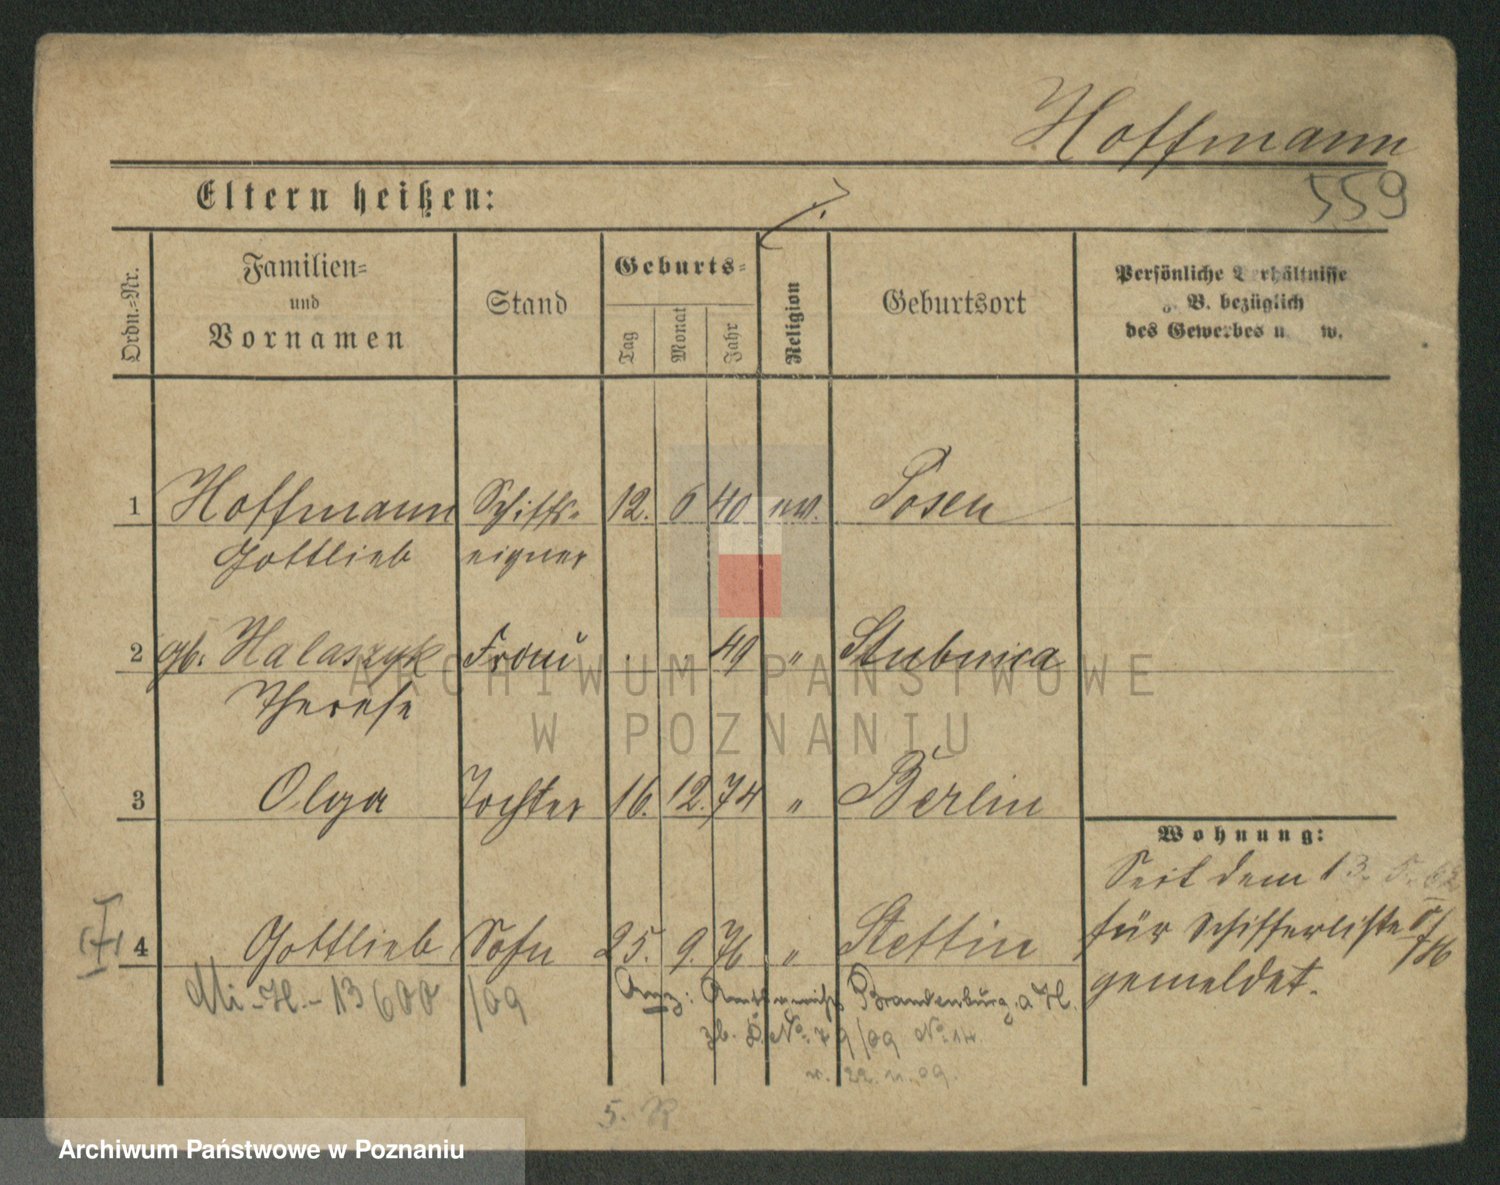 Hoffmann
559
Eltern heißen:
Ordn.-Nr.
Familien-
und
Vornamen
Stand
Geburts-
Tag
Monat
Jahr
Religion
Geburtsort
Persönliche Verhältnisse
z. B. bezüglich
des Gewerbes u. w.
1 Hoffmann Schiffs- 12. 6 40 ev. Posen
Gottlieb eigner
2 gb. Halaszyk Frau . . 49 " Stubnica
Therese
3 Olga Tochter 16. 12. 74 " Berlin
Wohnung:
Seit dem 13. 5.
für Schifferliste
gemeldet.
4 Gottlieb Sohn 25. 9. 76 " Stettin
Mi-H.- 13600/09
Anz: Amtsgericht Brandenburg a H.
No. 79/09 No. 14
v. 22. 11. 09.
5. R
ARCHIWUM PAŃSTWOWE
W POZNANIU
Archiwum Państwowe w Poznaniu